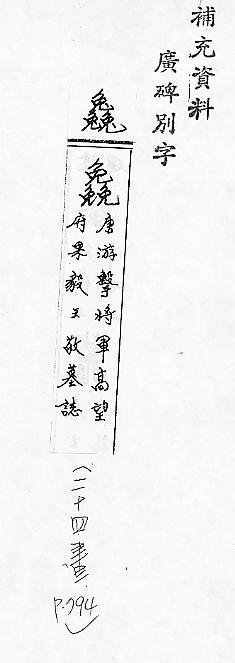 補充資料
廣碑別字
唐游擊將軍高望
府果毅王敬墓誌
(二十四畫